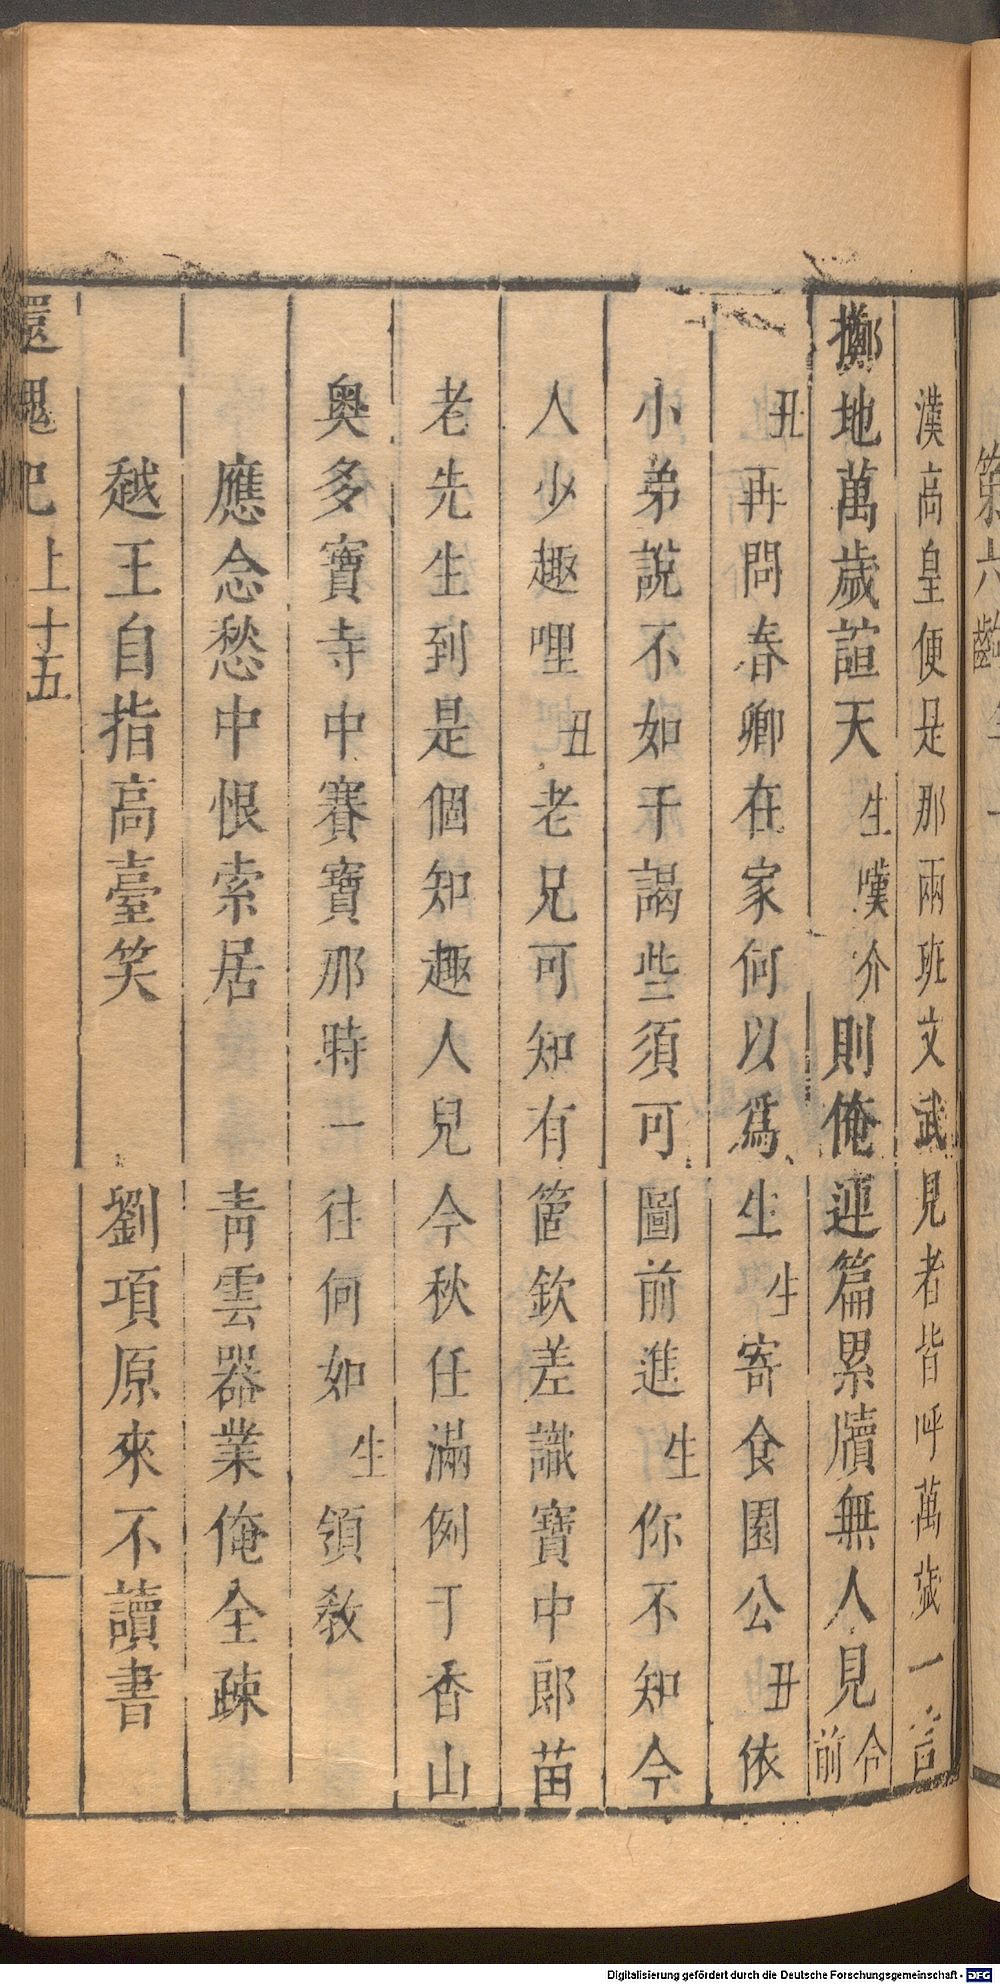 漢高皇便是那兩班文武見者皆呼萬歲一言
擲地萬歲諠天生嘆介則俺連篇累牘無人見合前
丑再問春卿在家何以爲生生寄食園公丑依
小弟說不如干謁些須可圖前進生你不知今
人少趣哩丑老兄可知有箇欽差識寶中郎苗
老先生到是個知趣人兒今秋任滿例于香山
奥多寶寺中賽寶那時一往何如生領教
應念愁中恨索居　青雲器業俺全疎
越王自指高臺笑　劉項原來不讀書
還魂記上十五
第六齣
Digitalisierung gefördert durch die Deutsche Forschungsgemeinschaft - DFG